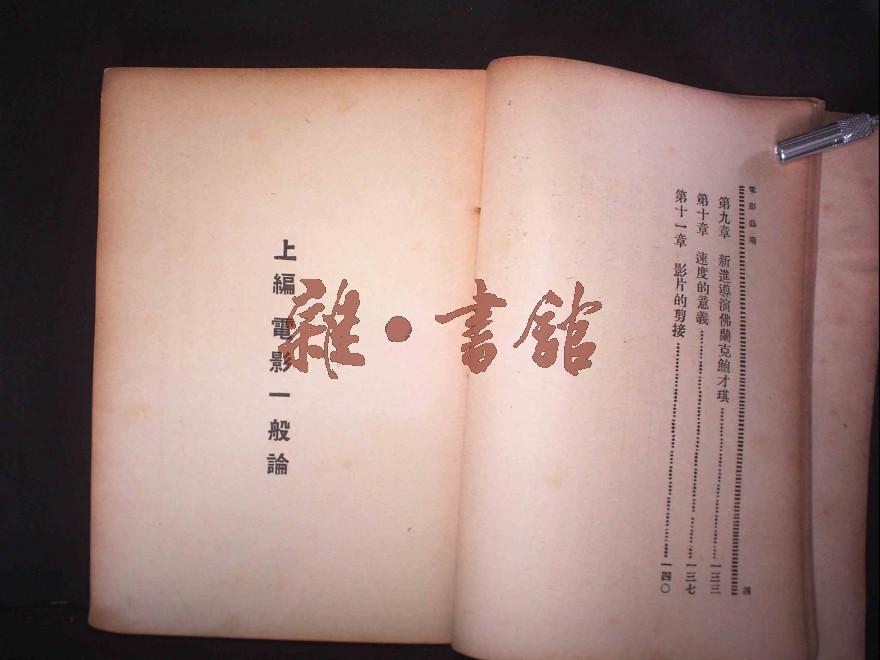 電影藝術
第九章　新進導演佛蘭克鮑才琪……一三三
第十章　速度的意義……一三七
第十一章　影片的剪接……一四〇
四
上編　電影一般論
雜·書館